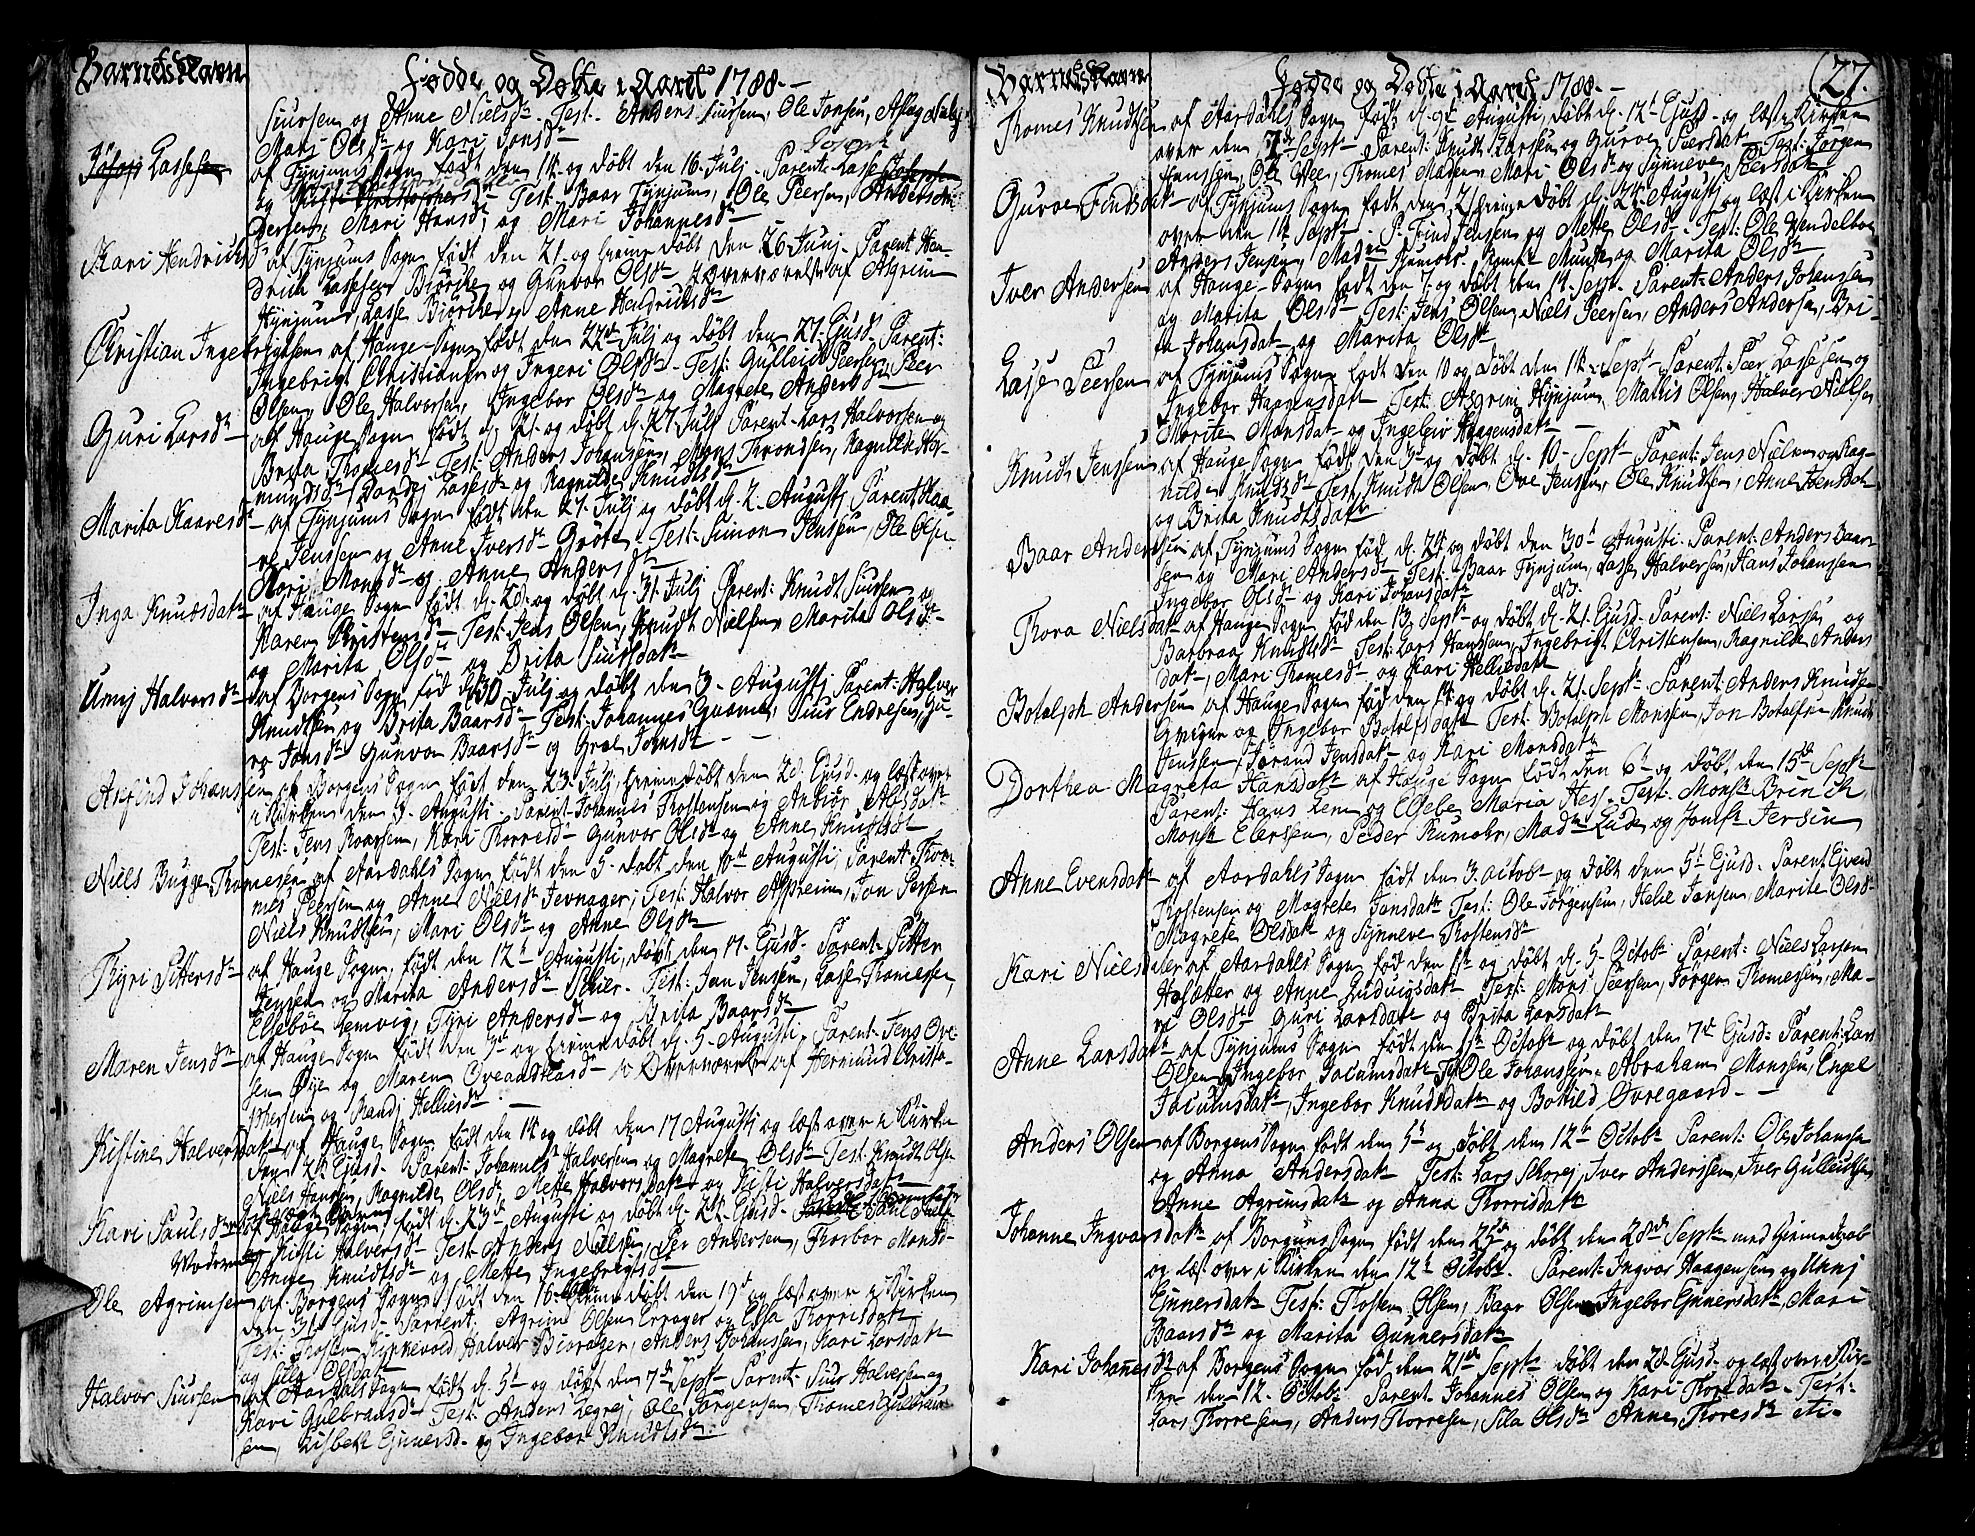 Barnets Navn
Fødde og Døbte i Aaret 1788.
Siursen og Anne Nielsdr Test. Anders Siursen, Ole Jonsen, Aslag
Mari Olsdr og Kari Jonsdr
Lassesen af Tynjums Sogn født den 14 og døbt den 16 Julj. Parent: Lasse
og Test: Baar Tynjum, Ole Peersen, Anders
Pedersen, Mari Hansdr, og Mari Johannesdr
Kari Hendrichsdr af Tynjums Sogn født den 21 og hiemedøbt den 26 Junj. Parent: Hen-
drich Lassesen Biørche og Gunvor Olsdr i Overværelse af Asgrim
Hynjum, Lasse Biørche og Anne Hendrichsdr
Christian Ingebrigtsen af Hauge Sogn født den 22de Julj og døbt den 27 Ejusd. Parent:
Ingebrigt Christiansen og Ingeri Olsdr. Test: Gulleich Peersen, Peer
Olsen, Ole Halversen, Ingebor Olsdr og Magrete Andersdr
Guri Larsdr af Hauge Sogn født d. 21 og døbt d. 27 Julj Parent: Lars Halvorsen og
Brita Thomesdr Test: Anders Johansen, Mons Trondsen, Ragnilde Her-
mundsdr, Randj Lassesdr og Ragnilde Knudtsdr
Marita Kaaresdr af Tynjums Sogn født den 27 Julj og døbt d. 2 Augustj Parent: Kaa-
re Jenssen og Anne Iversdr Grøte. Test: Simon Jensen, Ole Olsen
Mari Monsdr og Anne Andersdr
Inga Knudsdatr af Hauge Sogn født d. 28 og døbt d. 31 Julj Parent: Knudt Siursen og
Karen Christensdr Test: Jens Olsen, Knudt Nielsen, Marita Olsdr
og Marita Olsdr og Brita Siursdatr
Unnj Halvorsdr af Borgens Sogn fød d. 30 Julj og døbt den 3 Augustj Parent: Halver
Knudtsen og Brita Baarsdr Test: Johannes Qvame, Siur Endresen, Gu-
ro Jonsdr Gunvor Baarsdr og Groe Jonsdr
Arfind Johansen af Borgens Sogn født den 23 Julj, hiemedøbt den 28 Ejusd. og læst over
i Kirken den 3 Augusti. Parent: Johannes Thostensen og Anbiør Alisdatr
Test: Jens Roarsen, Kari Thorresdr Gunvor Olsdr og Anne Knudtsdr
Niels Bugge Thomesen af Aardahls Sogn født den 5 døbt den 10de Augusti, Parent: Thom-
mes Peersen og Anne Nielsdr Jevnager; Test: Halvor Aspheim, Jon Persen
Niels Knudtsen, Mari Olsdr og Anne Olsdr
Thyri Pittersdr af Hauge Sogn, født den 12te Augusti, døbt den 17 Ejusd. Parent: Pitter
Jensen og Marita Andersdr Schier. Test: Jan Jensen, Lasse Thomesen,
Elsebøe Lemvig, Tyri Andersdr og Brita Baarsdr
Maren Jensdr af Hauge Sogn født den 3d og hiemedøbt d. 5 Augusti, Parent: Jens Ove-
sen Øye og Maren i Overværelse af Hermund Christo-
phersen og Randj Helliesdr
Kistine Halversdatr af Hauge Sogn født den 14 og døbt den 17 Augusti og læst over i Kirken
den 24 Ejusd. Parent: Johannes Halversen og Magrete Olsdr Test: Knudt Olsen
Niels Hansen, Ragnilde Olsdr, Mette Halversdatr og Kisti Halversdatr
Kari Paulsdr af Hauge Sogn, født d. 23d Augusti og døbt d. 24 Ejusd. Paul
og Kisti Halversdr Test: Anders Nielsen, Per Andersen, Thorbor Monsdr
Anne Knudtsdr og Mette Ingebrigtsdr
Ole Agrimsen af Borgens Sogn født den 16 hiemedøbt den 19d og læst over i Kirken
den 31 Ejusd. Parent: Agrim Olsen Errager og Elsa Thorrisdatr
Test: Thosten Kynnevold, Halver Biørager, Anders Johanssen, Kari Larsdatr
og Sila Olsdatr
Halvor Siursen af Aardals Sogn født d. 5d og døbt den 7de Sept. Parent: Siur Halversen og
Kari Gulbransdr Test: Anders Legrej, Ole Jørgensen, Thomes Gulbran-
sen, Lisbeth Ejnersd. og Ingebor Knudtsdr
Barnets Navn
Fødde og Døbte i Aaret 1788.
27.
Thomes Knudtsen af Aardahls Sogn født d. 9d Augusti, døbt d. 12d Ejusd. og læst i Kirken
over den 7de Sept. Parent: Knudt Larsen og Gurve Peersdatr Test: Jørgen
Jensen, Ole Wee, Thomes Madsen, Mari Olsdr og Synneve Peersdatr
Gurve Findsdatr af Tynjums Sogn født den 21 hiemedøbt d. 24 Augusti og læst i Kirken
over den 14 Sept. P. Find Jensen og Mette Olsdr. Test: Ole Wendelboe
Anders Jensen, Madm Rumohr, Munch og Marita Olsdr
Iver Andersen af Hauge Sogn født den 7 og døbt den 14 Sept. Parent: Anders Johansen
og Marita Olsdr Test: Jens Olsen, Niels Peersen, Anders Andersen, Bri-
ta Johansdatr og Marita Olsdr
Lasse Peersen af Tynjums Sogn født den 10 og døbt den 14 Sept. Parent: Peer Lassesen og
Ingebor Haagensdatr Test: Asgrim Hynjum, Mattis Olsen, Halver Nielsen
Marite Monsdatr og Ingeleiv Haagensdatr
Knudt Jenssen af Hauge Sogn født den 3d og døbt d. 10 Sept. Parent: Jens Nielsen og Rag-
nilde Knudtsdr Test: Knudt Olsen, Ove Jensen, Ole Knudtsen, Anne Jensdatr
og Brita Knudtsdatr
Baar Andersen af Tynjums Sogn fød d. 24 og døbt den 30d Augusti. Parent: Anders Baar-
sen og Mari Andersdr Test: Baar Tynjum, Lasse Halversen, Hans Johanssen
Ingebor Olsdr og Kari Johansdatr
NB.
Thora Nielsdatr af Hauge Sogn fød den 13 Sept. og døbt d. 21 Ejusd. Parent: Niels Larsen og
Barbraa Knudtsdr Test: Lars Hanssen, Ingebrigt Christensen, Ragnilde Anders-
datr, Mari Thomesdr og Kari Helliesdatr
Botolph Andersen af Hauge Sogn fød den 14 og døbt d. 21 Sept. Parent: Anders Knudsen
Qvigne og Ingebor Botolfsdatr Test: Botolph Monsen, Jon Botolfsen Knudt
Jenssen, Jorand Jensdatr og Kari Monsdatr
Dorthea Magreta Hansdatr af Hauge Sogn født den 6te og døbt den 15de Sept.
Parent: Hans Lem og Elsebe Maria Hess. Test: Monsr Brinch
Monsr Elersen, Peder Rumohr, Madm Lude og Jomfr Jersin
Anne Evensdatr af Aardahls Sogn født den 3. octobr og døbt den 5d Ejusd. Parent: Ejvend
Thostensen og Magrete Jansdatr Test: Ole Jørgensen, Helie Jonsen, Marite Olsdr
Magrete Olsdatr og Synneve Thostensdr
Kari Nielsdatr af Aardahls Sogn fød den 1te og døbt d. 5. Octobr Parent: Niels Larsen
Hofsætter og Anne Ludvigsdatr Test: Mons Peersen, Jørgen Thomesen, Ma-
ri Olsdr Guri Larsdatr og Brita Larsdatr
Anne Larsdatr af Tynjums Sogn født den 1te Octobr og døbt den 7de Ejusd: Parent: Lars
Olsen Ingebor Jacumsdatr Test: Ole Johanssen, Abraham Monsen, Engel
Jacumsdatr, Ingebor Knudsdatr og Botild Øvregaard.
Anders Olsen af Borgens Sogn født den 5d og døbt den 12te Octobr Parent: Ole Johansen
og Anna Andersdatr Test: Lars Schorej, Iver Anderssen, Iver Gulleichsen
Anne Agrimsdatr og Anna Thorrisdatr
Johanne Ingvarsdatr af Borgens Sogn født den 25de og døbt den 28de Septr med hiemedaab
og læst over i Kirken den 12te Octobr. Parent: Ingvor Haagensen og Unnj
Ejnersdatr Test: Thosten Olsen, Baar Olsen Ingebor Ejnersdatr, Mari
Baarsdr og Marita Gunnersdatr
Kari Johannesdr af Borgens Sogn fød den 21de Septr døbt den 28 Ejusd. og læst over i Kir-
ken den 12 Octobr Parent: Johannes Olsen og Kari Thoresdatr. Test:
Lars Thorresen, Anders Thorresen, Sila Olsdr Anne Thoresdr